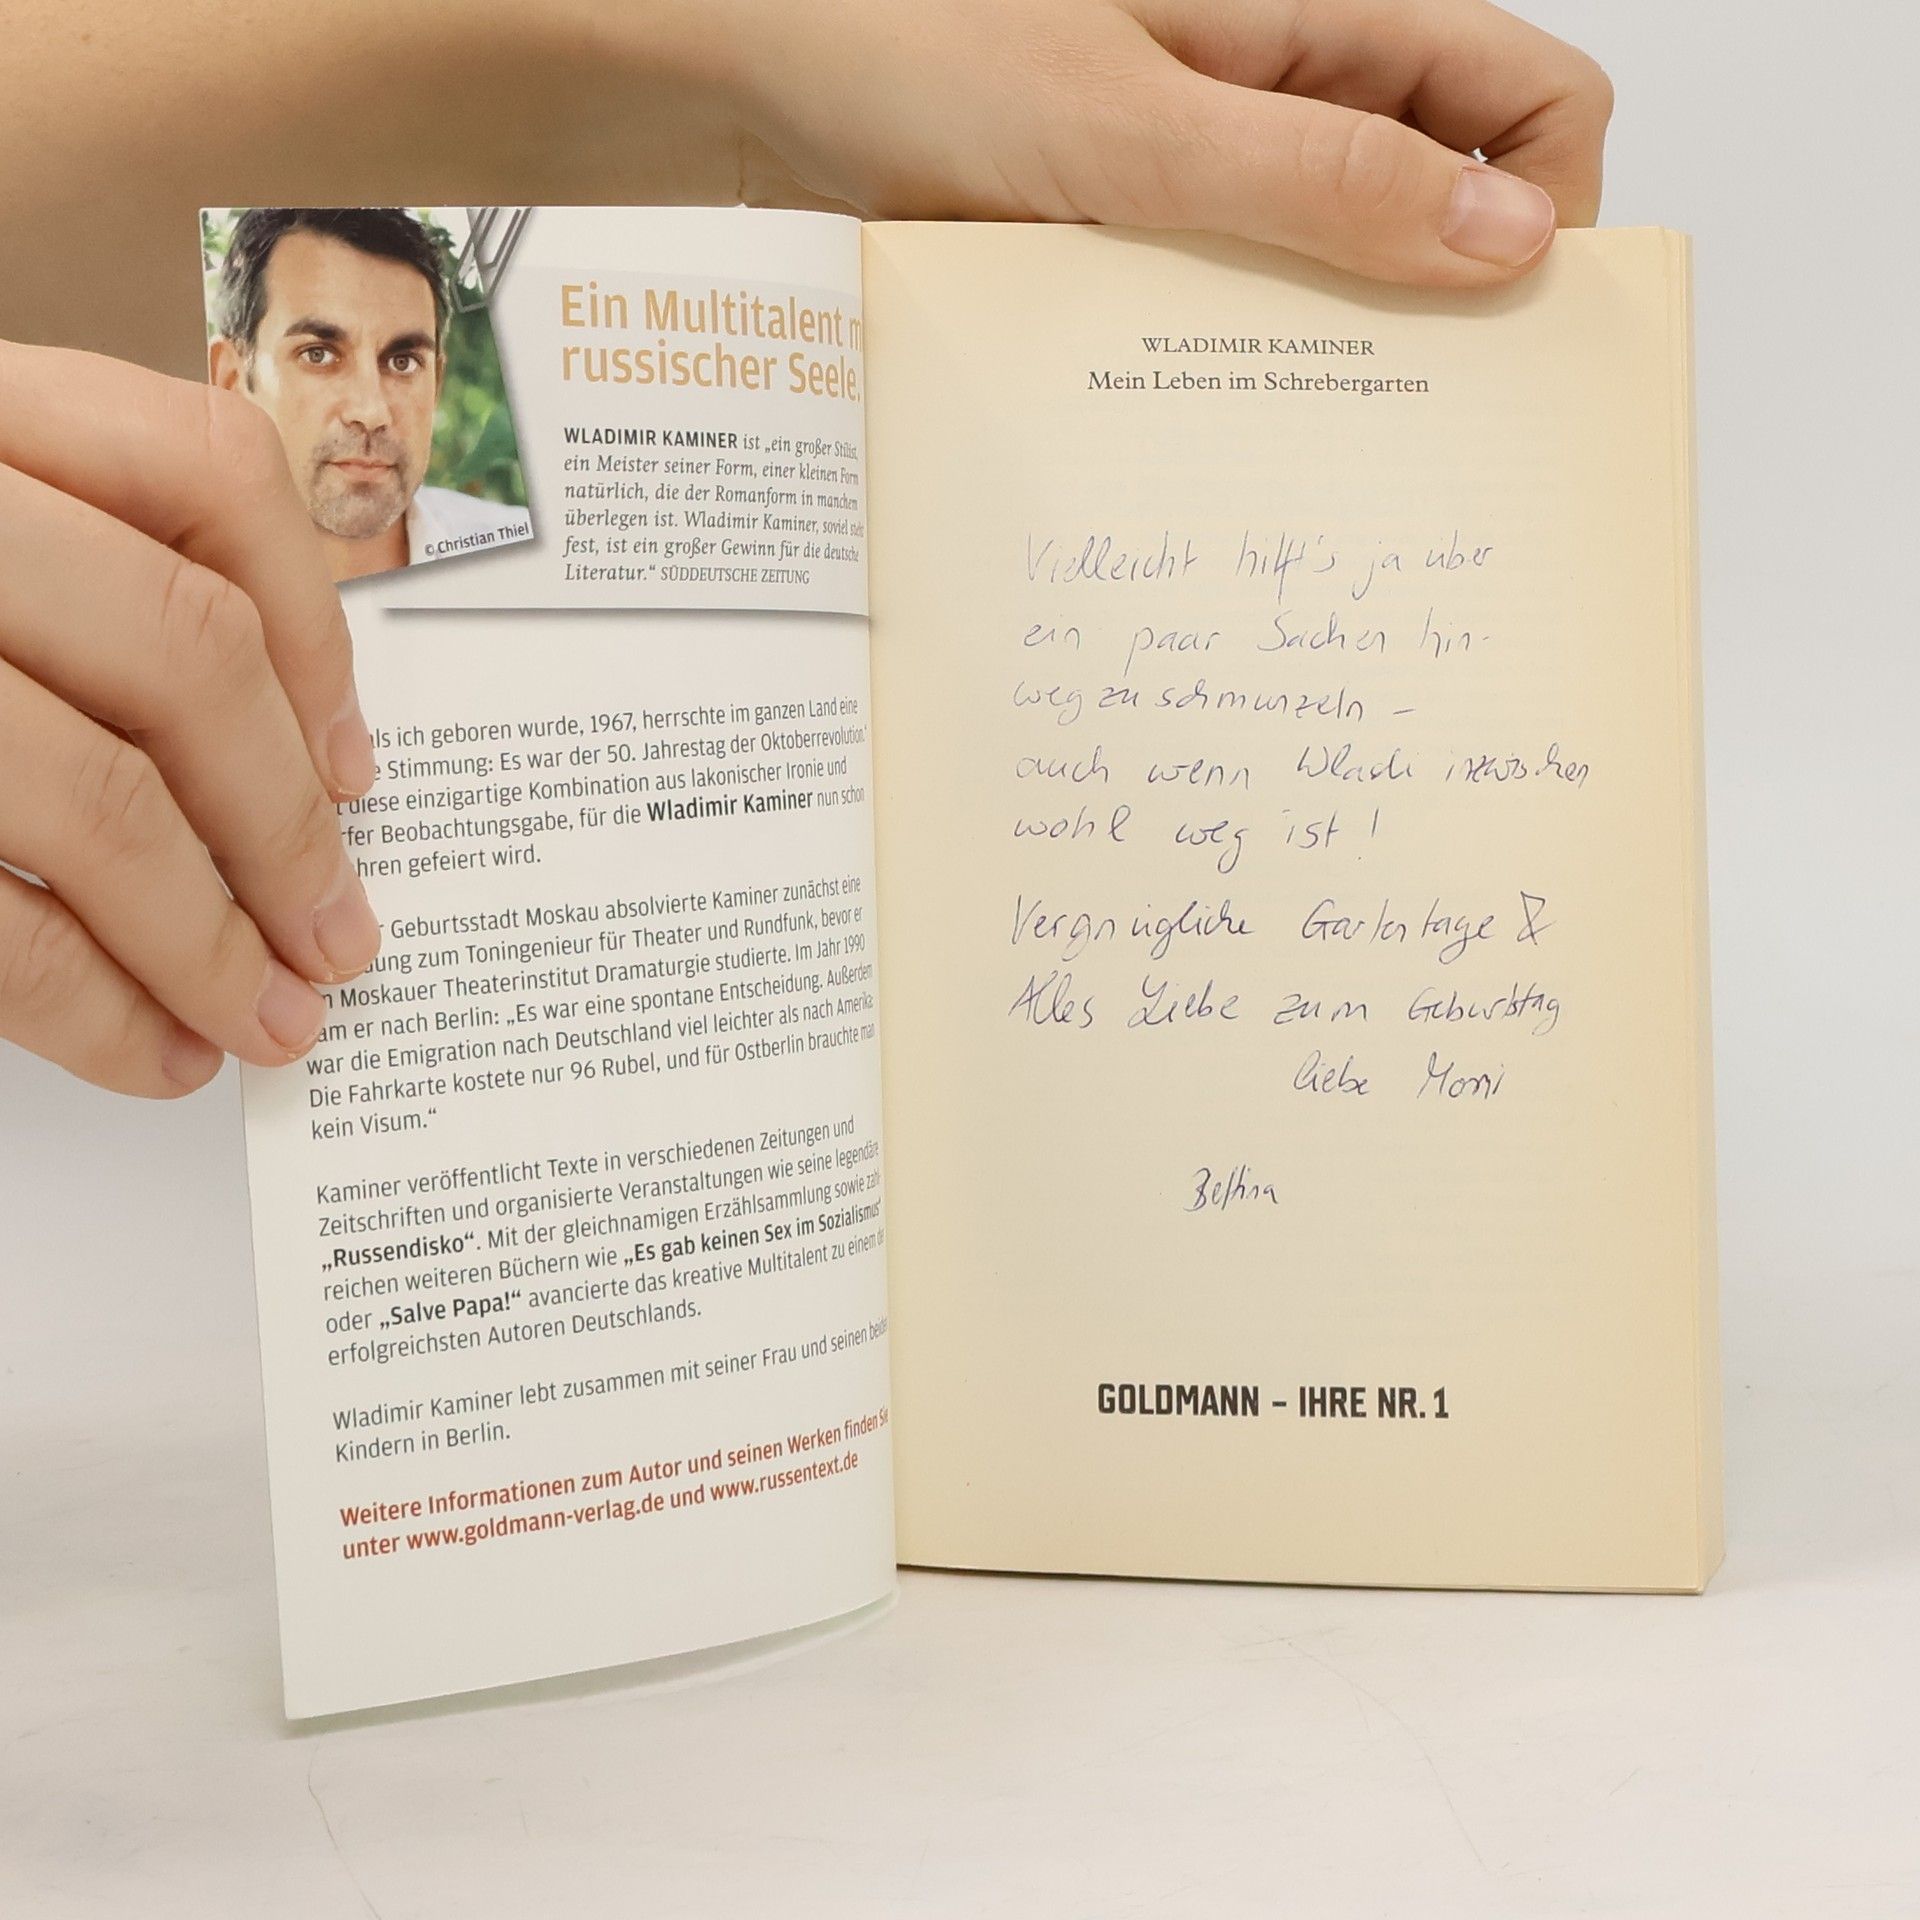 © Christian Thiel
Ein Multitalent m
russischer Seele.
WLADIMIR KAMINER ist „ein großer Stilist,
ein Meister seiner Form, einer kleinen Form
natürlich, die der Romanform in manchem
überlegen ist. Wladimir Kaminer, soviel steht
fest, ist ein großer Gewinn für die deutsche
Literatur.“ SÜDDEUTSCHE ZEITUNG
ls ich geboren wurde, 1967, herrschte im ganzen Land eine
e Stimmung: Es war der 50. Jahrestag der Oktoberrevolution.“
t diese einzigartige Kombination aus lakonischer Ironie und
rfer Beobachtungsgabe, für die Wladimir Kaminer nun schon
hren gefeiert wird.
r Geburtsstadt Moskau absolvierte Kaminer zunächst eine
dung zum Toningenieur für Theater und Rundfunk, bevor er
n Moskauer Theaterinstitut Dramaturgie studierte. Im Jahr 1990
am er nach Berlin: „Es war eine spontane Entscheidung. Außerdem
war die Emigration nach Deutschland viel leichter als nach Amerika:
Die Fahrkarte kostete nur 96 Rubel, und für Ostberlin brauchte man
kein Visum.“
Kaminer veröffentlicht Texte in verschiedenen Zeitungen und
Zeitschriften und organisierte Veranstaltungen wie seine legendäre
„Russendisko“. Mit der gleichnamigen Erzählsammlung sowie zahl-
reichen weiteren Büchern wie „Es gab keinen Sex im Sozialismus“
oder „Salve Papa!“ avancierte das kreative Multitalent zu einem der
erfolgreichsten Autoren Deutschlands.
Wladimir Kaminer lebt zusammen mit seiner Frau und seinen beiden
Kindern in Berlin.
Weitere Informationen zum Autor und seinen Werken finden Sie
unter www.goldmann-verlag.de und www.russentext.de
WLADIMIR KAMINER
Mein Leben im Schrebergarten
Vielleicht hilft's ja über
ein paar Sachen hin-
weg zu schmunzeln –
auch wenn Wladi inzwischen
wohl weg ist!
Vergnügliche Gartentage &
Alles Liebe zum Geburtstag
liebe Moni
Bettina
GOLDMANN – IHRE NR. 1